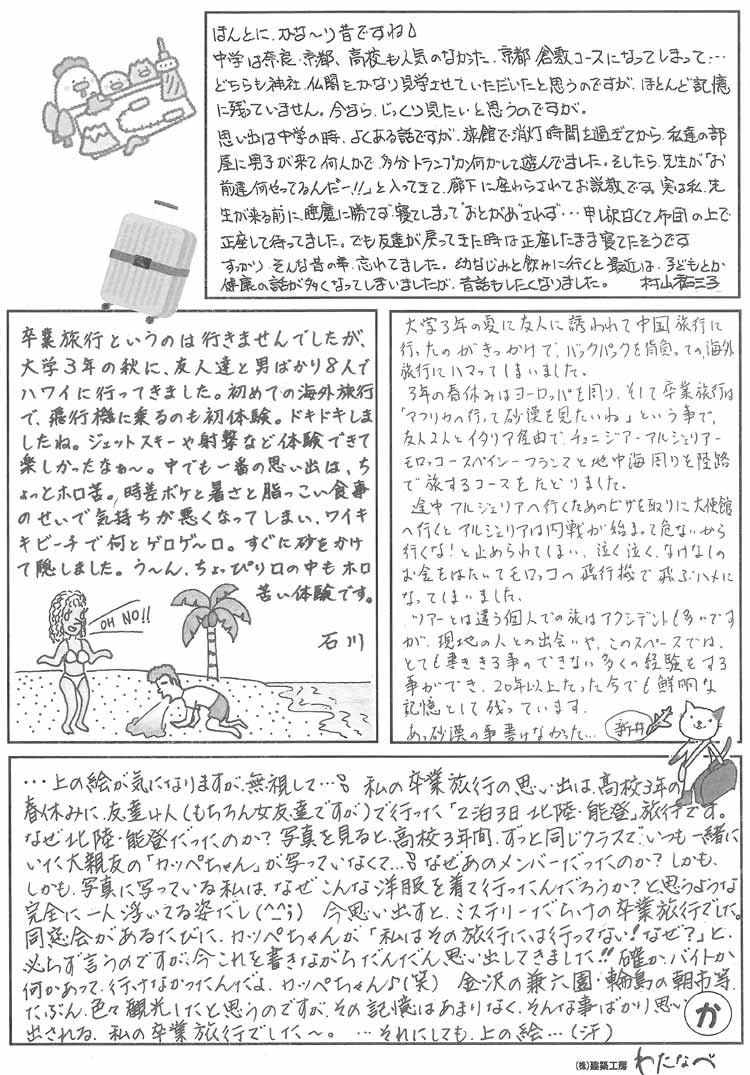 ほんとに、かな～り昔ですね♪
中学は奈良・京都、高校も人気のなかった、京都倉敷コースになってしまって…
どちらも神社、仏閣をかなり見学させていただいたと思うのですが、ほとんど記憶
に残っていません。今なら、じっくり見たいと思うのですが。
思い出は中学の時、よくある話ですが、旅館で消灯時間を過ぎてから、私達の部
屋に男子が来て何人かで、多分トランプか何かして遊んでました。そしたら、先生が「お
前達、何やってるんだー!!」と入ってきて、廊下に座わらされてお説教です。実は私、先
生が来る前に、睡魔に勝てず寝てしまって“おとがめ”されず…申し訳なくて布団の上で
正座して待ってました。でも友達が戻ってきた時は正座したまま寝てたそうです
すっかり、そんな昔の事、忘れてました。幼なじみと飲みに行くと最近は、子どもとか
健康の話が多くなってしまいましたが、昔話もしたくなりました。 村山
卒業旅行というのは行きませんでしたが、
大学3年の秋に、友人達と男ばかり8人で
ハワイに行ってきました。初めての海外旅行
で、飛行機に乗るのも初体験。ドキドキしま
したね。ジェットスキーや射撃など体験できて
楽しかったなぁ～。中でも一番の思い出は、ち
ょっとホロ苦。時差ボケと暑さと脂っこい食事
のせいで気持ちが悪くなってしまい、ワイキ
キビーチで何とゲロゲ～ロ。すぐに砂をかけ
て隠しました。う～ん、ちょっぴり口の中もホロ
苦い体験です。
OH NO!!
石川
大学3年の夏に友人に誘われて中国旅行に
行ったのがきっかけで、バックパックを背負っての海外
旅行にハマってしまいました。
3年の春休みはヨーロッパを周り、そして卒業旅行は
「アフリカへ行って砂漠を見たいね」という事で、
友人2人とイタリア経由で、チュニジアーアルジェリアー
モロッコースペインーフランスと地中海周りを陸路
で旅するコースをたどりました。
途中アルジェリアへ行くためのビザを取りに大使館
へ行くとアルジェリアは内戦が始まって危ないから
行くな!と止められてしまい、泣く泣く、なけなしの
お金をはたいてモロッコへ飛行機で飛ぶハメに
なってしまいました。
ツアーとは違う個人での旅はアクシデントも多いです
が、現地の人との出会いや、このスペースでは、
とても書ききる事のできない多くの経験をする
事ができ、20年以上たった今でも鮮明な
記憶として残っています。
あっ砂漠の事書けなかった… 新井
…上の絵が気になりますが、無視して… 私の卒業旅行の思い出は、高校3年の
春休みに、友達4人(もちろん女友達ですが)で行った「2泊3日 北陸・能登」旅行です。
なぜ北陸・能登だったのか?写真を見ると、高校3年間、ずっと同じクラスで、いつも一緒に
いた大親友の「カッペちゃん」が写っていなくて… なぜあのメンバーだったのか?しかも、
しかも、写真に写っている私は、なぜこんな洋服を着て行ったんだろうか?と思うような
完全に一人浮いてる姿だし(^_^;) 今思い出すと、ミステリーだらけの卒業旅行でした。
同窓会があるたびに、カッペちゃんが「私はその旅行には行ってない!なぜ?」と、
必らず言うのですが、今これを書きながらだんだん思い出してきました!!確か、バイトか
何かあって、行けなかったんだよ、カッペちゃん♪(笑) 金沢の兼六園・輪島の朝市等、
たぶん、色々観光したと思うのですが、その記憶はあまりなく、そんな事ばかり思い
出される、私の卒業旅行でした～。 …それにしても、上の絵…(汗)
か
(株)建築工房 わたなべ